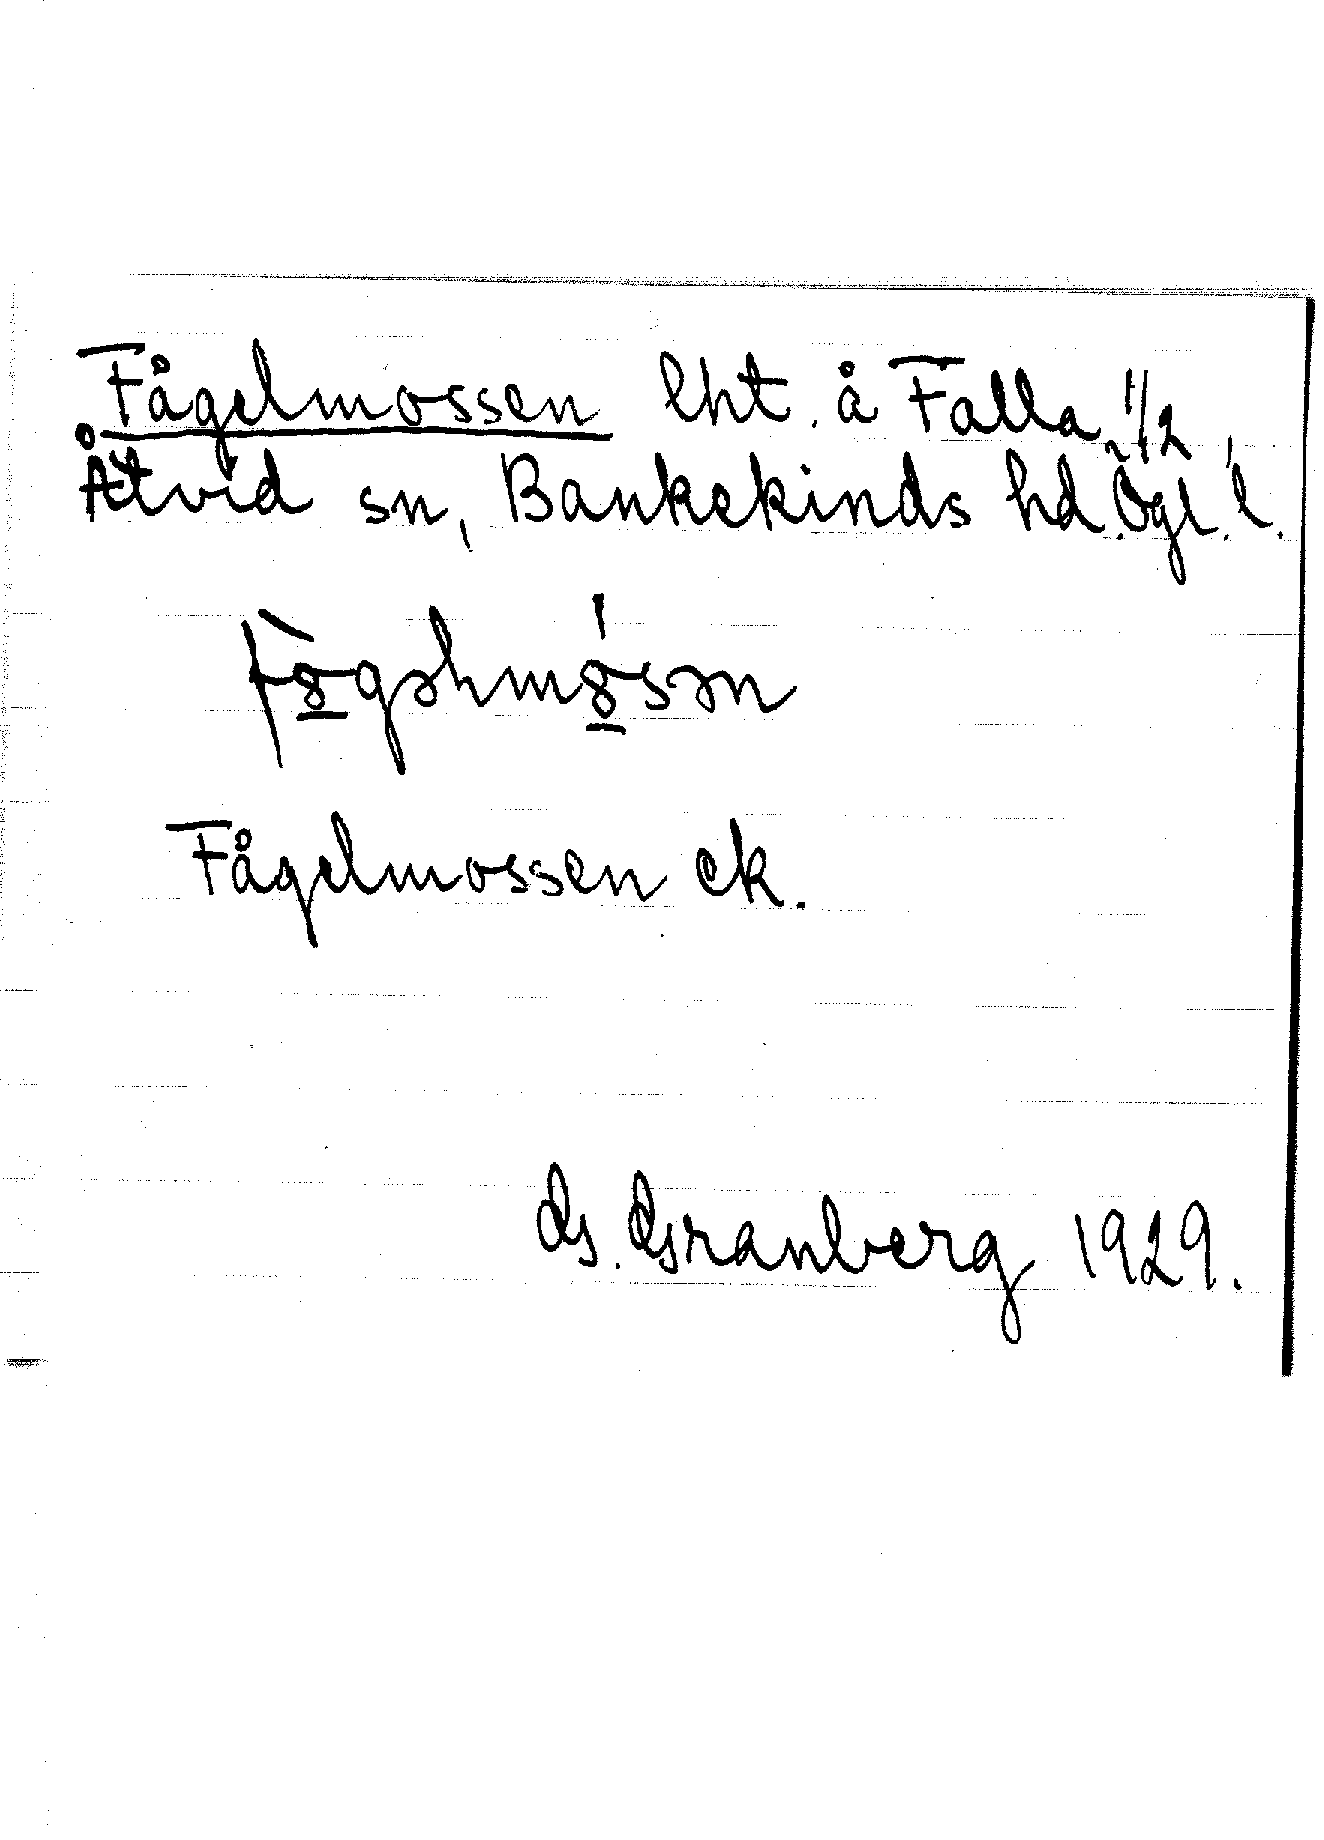 Fågelmossen lht. å Falla 1/2,
Åtvid sn, Bankekinds hd. Ögl. l.
Fågelmossen ek.
G. Granberg 1929.